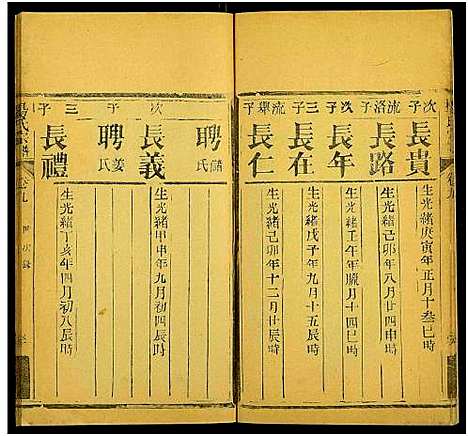 次子
長貴
生光緒庚寅年正月十叁巳時
流洛子
長路
生光緒己卯年八月廿四申時
次子
長年
生光緒壬午年臘月十四巳時
三子
長在
生光緒戊子年九月十五辰時
流舉子
長仁
生光緒己卯年十二月廿辰時
聘
氏
次子
長義
生光緒甲申年九月初四辰時
聘姜氏
三子
長禮
生光緒丁亥年四月初八辰時
楊氏宗譜
卷九